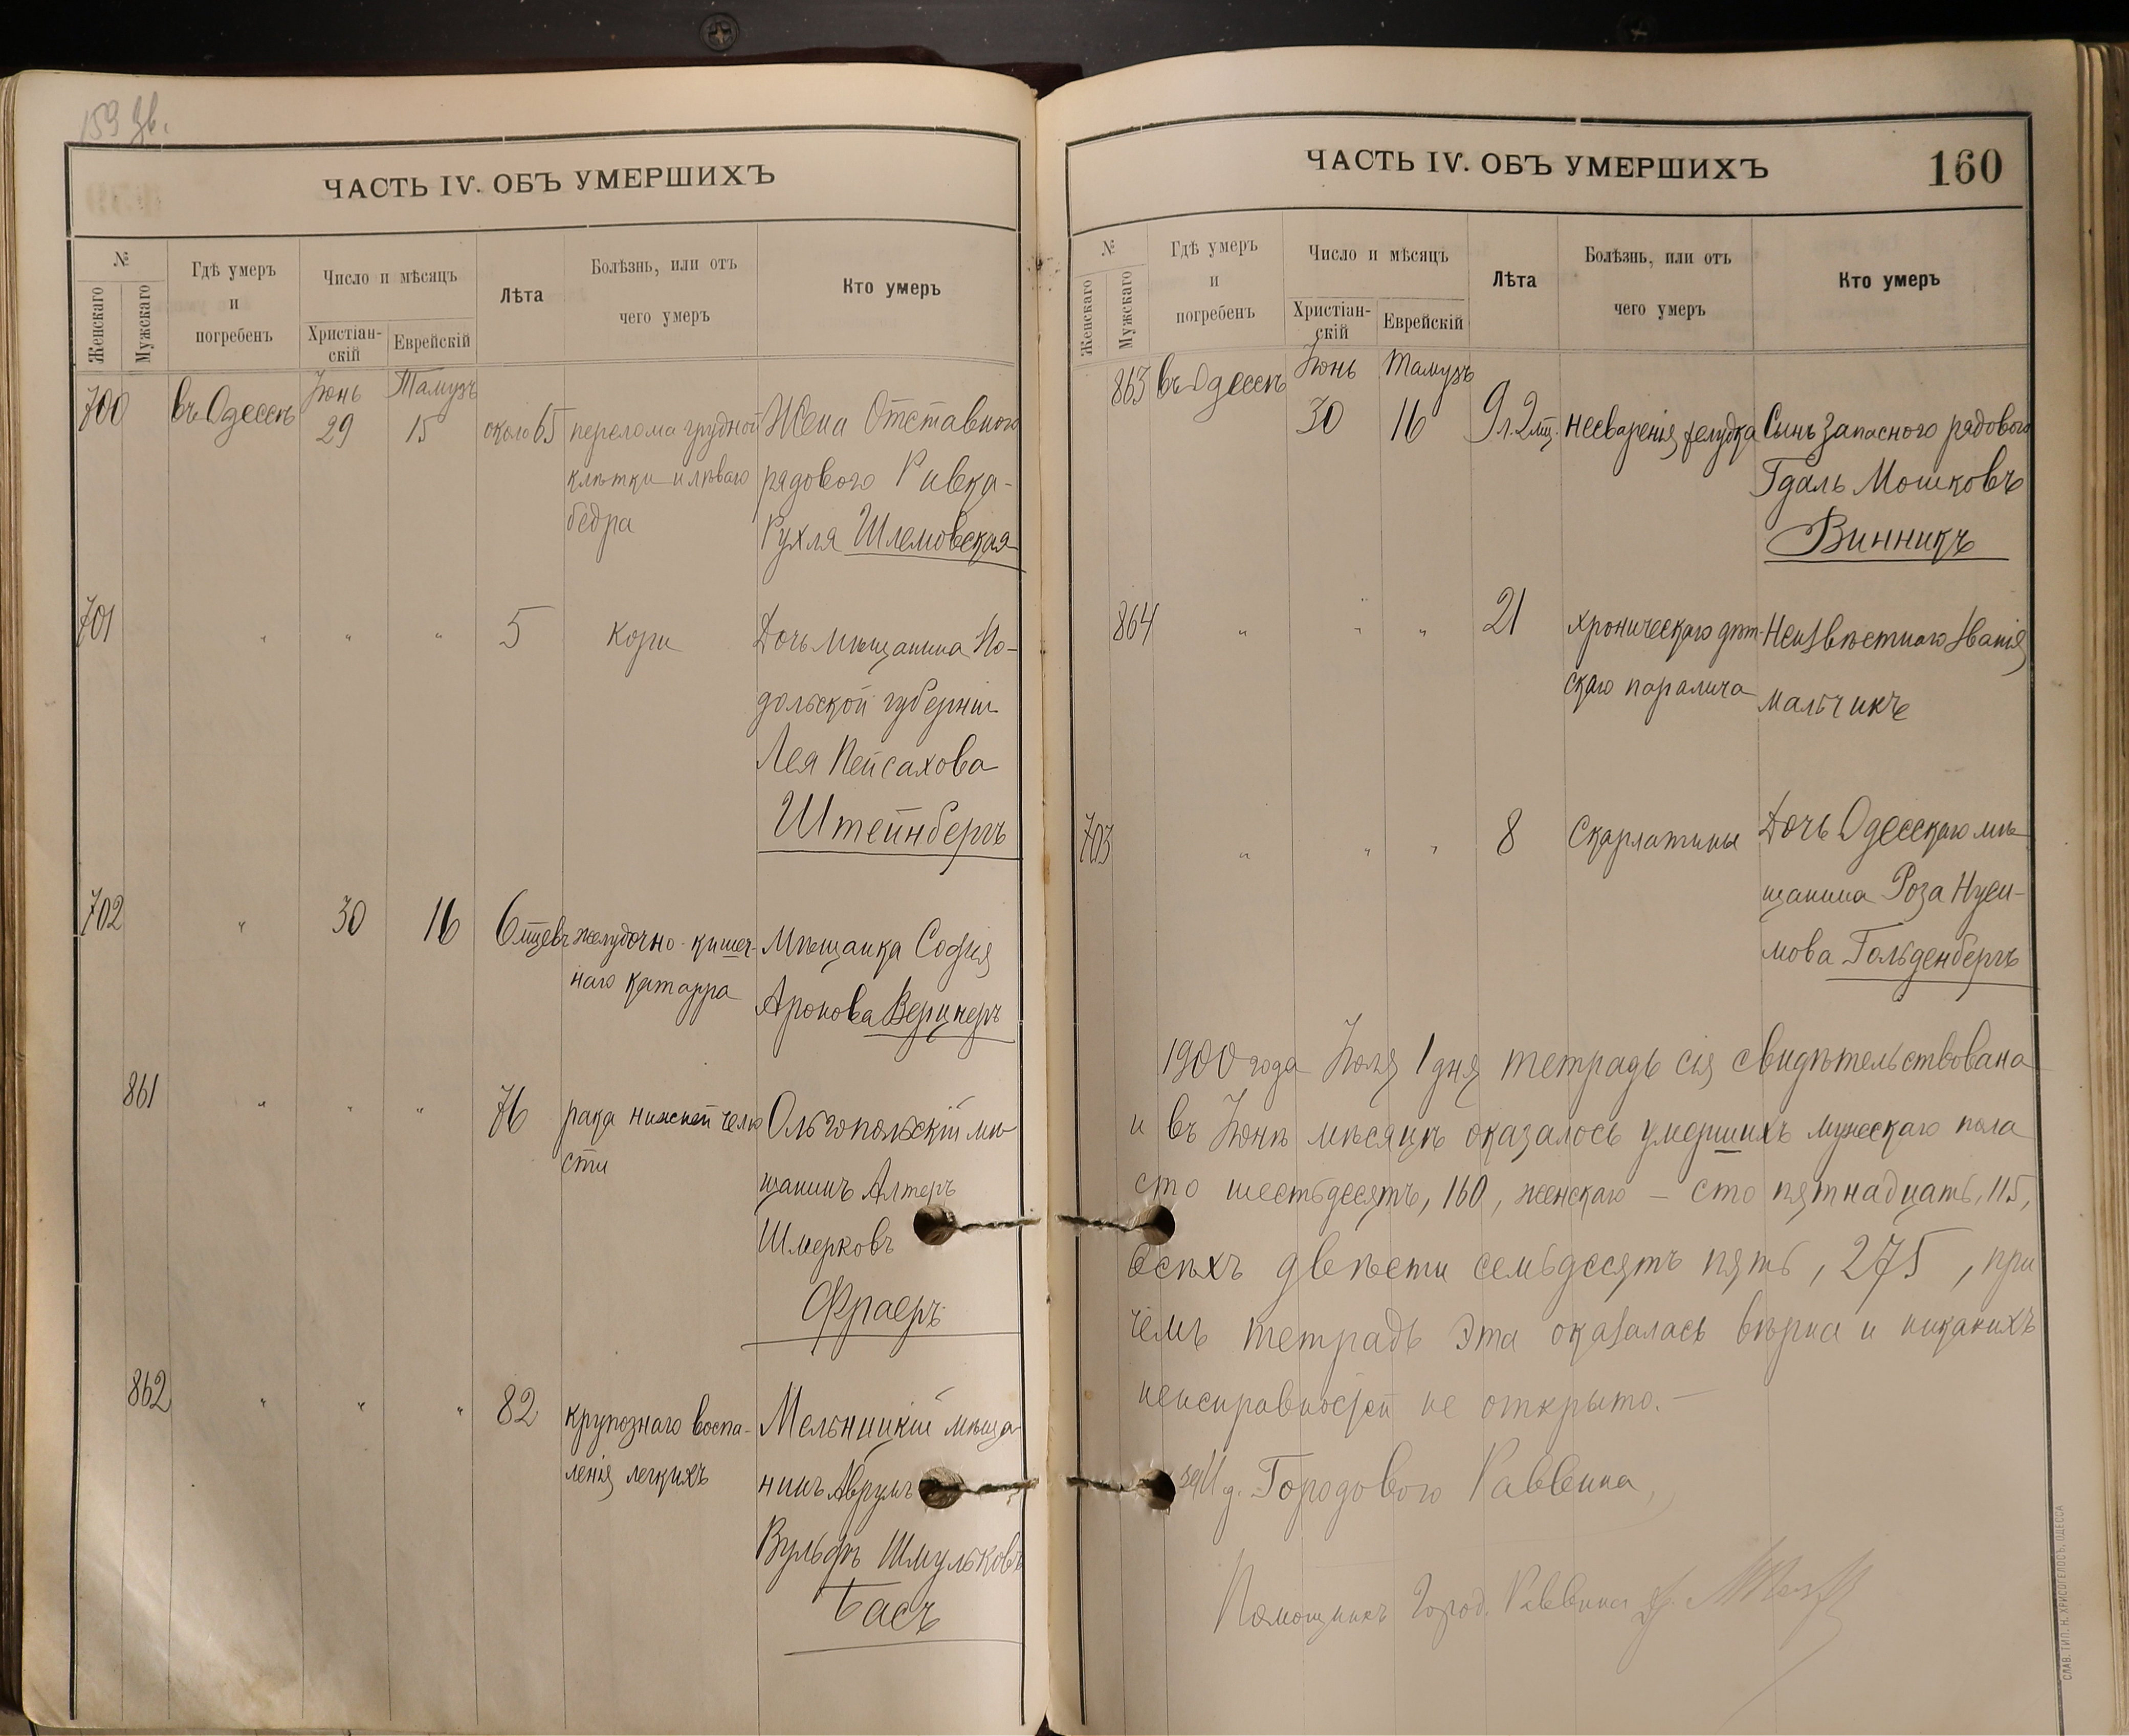 159 Зв.
ЧАСТЬ IV. ОБЪ УМЕРШИХЪ
№
Женскаго
Мужскаго
Гдѣ умеръ
и
погребенъ
Число и мѣсяцъ
Христіан-
скій
Еврейскій
Лѣта
Болѣзнь, или отъ
чего умеръ
Кто умеръ
700 въ Одессѣ Іюнь 29 Тамузъ 15 около 65 перелома грудной Жена Отставного
клѣтки и лѣваго рядового Ривка-
бедра Рухля Шлемовская
701 " " " 5 кори Дочь мѣщанина По-
дольской губерніи
Лея Пейсахова
Штейнбергъ
702 " 30 16 6 мцевъ желудочно-кишеч- Мѣщанка Софія
наго катарра Аронова Верцнеръ
861 " " " 76 рака нижней челю Ольгопольскій мѣ
сти щанинъ Алтеръ
Шмерковъ
Фраеръ
862 " " " 82 крупознаго воспа- Мельницкій мѣща
ленія легкихъ нинъ Аврумъ
Вульфъ Шмульковъ
Басъ
ЧАСТЬ IV. ОБЪ УМЕРШИХЪ
160
№
Женскаго
Мужскаго
Гдѣ умеръ
и
погребенъ
Число и мѣсяцъ
Христіан-
скій
Еврейскій
Лѣта
Болѣзнь, или отъ
чего умеръ
Кто умеръ
863 въ Одессѣ Іюнь 30 Тамузъ 16 9 л. 2 мц. несваренія желудка Сынъ запасного рядового
Гдаль Мошковъ
Винникъ
864 " " " 21 хроническаго дѣт- Неизвѣстнаго званія
скаго паралича мальчикъ
703 " " " 8 Скарлатины Дочь Одесскаго мѣ
щанина Роза Нуси-
мова Гольденбергъ
1900 года Іюля 1 дня тетрадь сія свидѣтельствована
и въ Іюнѣ мѣсяцѣ оказалось умершихъ мужескаго пола
сто шестьдесятъ, 160, женскаго – сто пятнадцать, 115,
всѣхъ двѣсти семьдесятъ пять, 275, при
чемъ тетрадь эта оказалась вѣрна и никакихъ
неисправностей не открыто. —
за И. д. Городового Раввина,
Помощникъ Город. Раввина
СЛАВ. ТИП. Н. ХРИСОГЕЛОСЪ. ОДЕССА